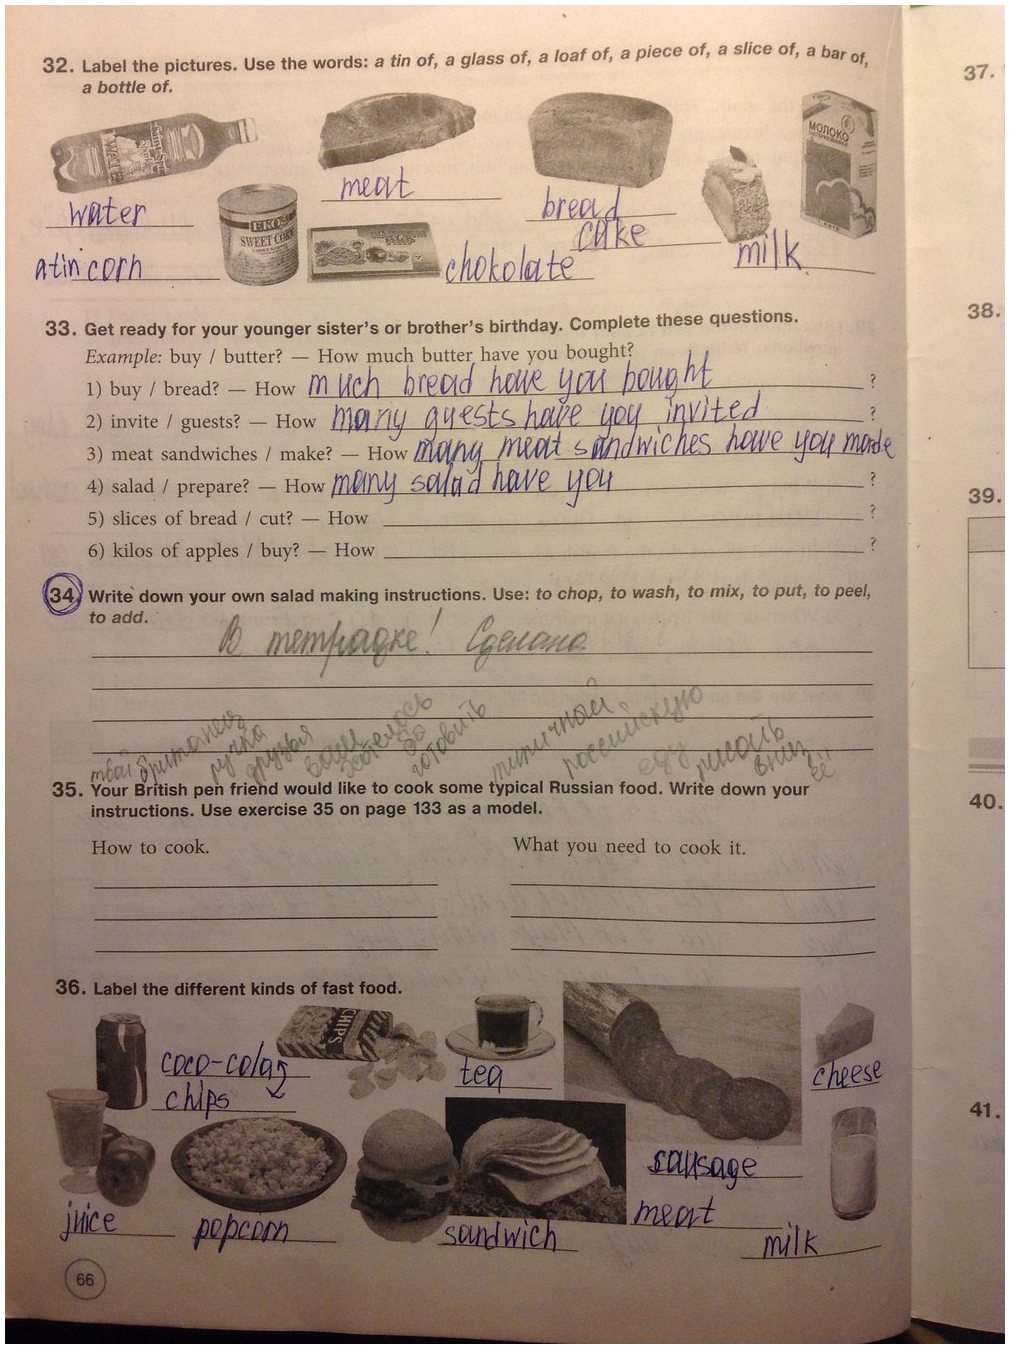 32. Label the pictures. Use the words: a tin of, a glass of, a loaf of, a piece of, a slice of, a bar of,
a bottle of.
МОЛОКО
WATER
meat
water
bread
EKO
SWEET CORN
cake
milk
a tin corn
chokolate
33. Get ready for your younger sister's or brother's birthday. Complete these questions.
Example: buy / butter? — How much butter have you bought?
1) buy / bread? — How much bread have you bought ?
2) invite / guests? — How many guests have you invited ?
3) meat sandwiches / make? — How many meat sandwiches have you made
4) salad / prepare? — How many salad have you ?
5) slices of bread / cut? — How ?
6) kilos of apples / buy? — How ?
34. Write down your own salad making instructions. Use: to chop, to wash, to mix, to put, to peel,
to add.
В тетрадке! Сделано.
твой британец ручка друзья захотелось бы готовить типичной российскую еду писать вниз её
35. Your British pen friend would like to cook some typical Russian food. Write down your
instructions. Use exercise 35 on page 133 as a model.
How to cook. What you need to cook it.
36. Label the different kinds of fast food.
CHIPS
coco-cola
tea
cheese
chips
sausage
juice
popcorn
sandwich
meat
milk
66
37.
38.
39.
40.
41.